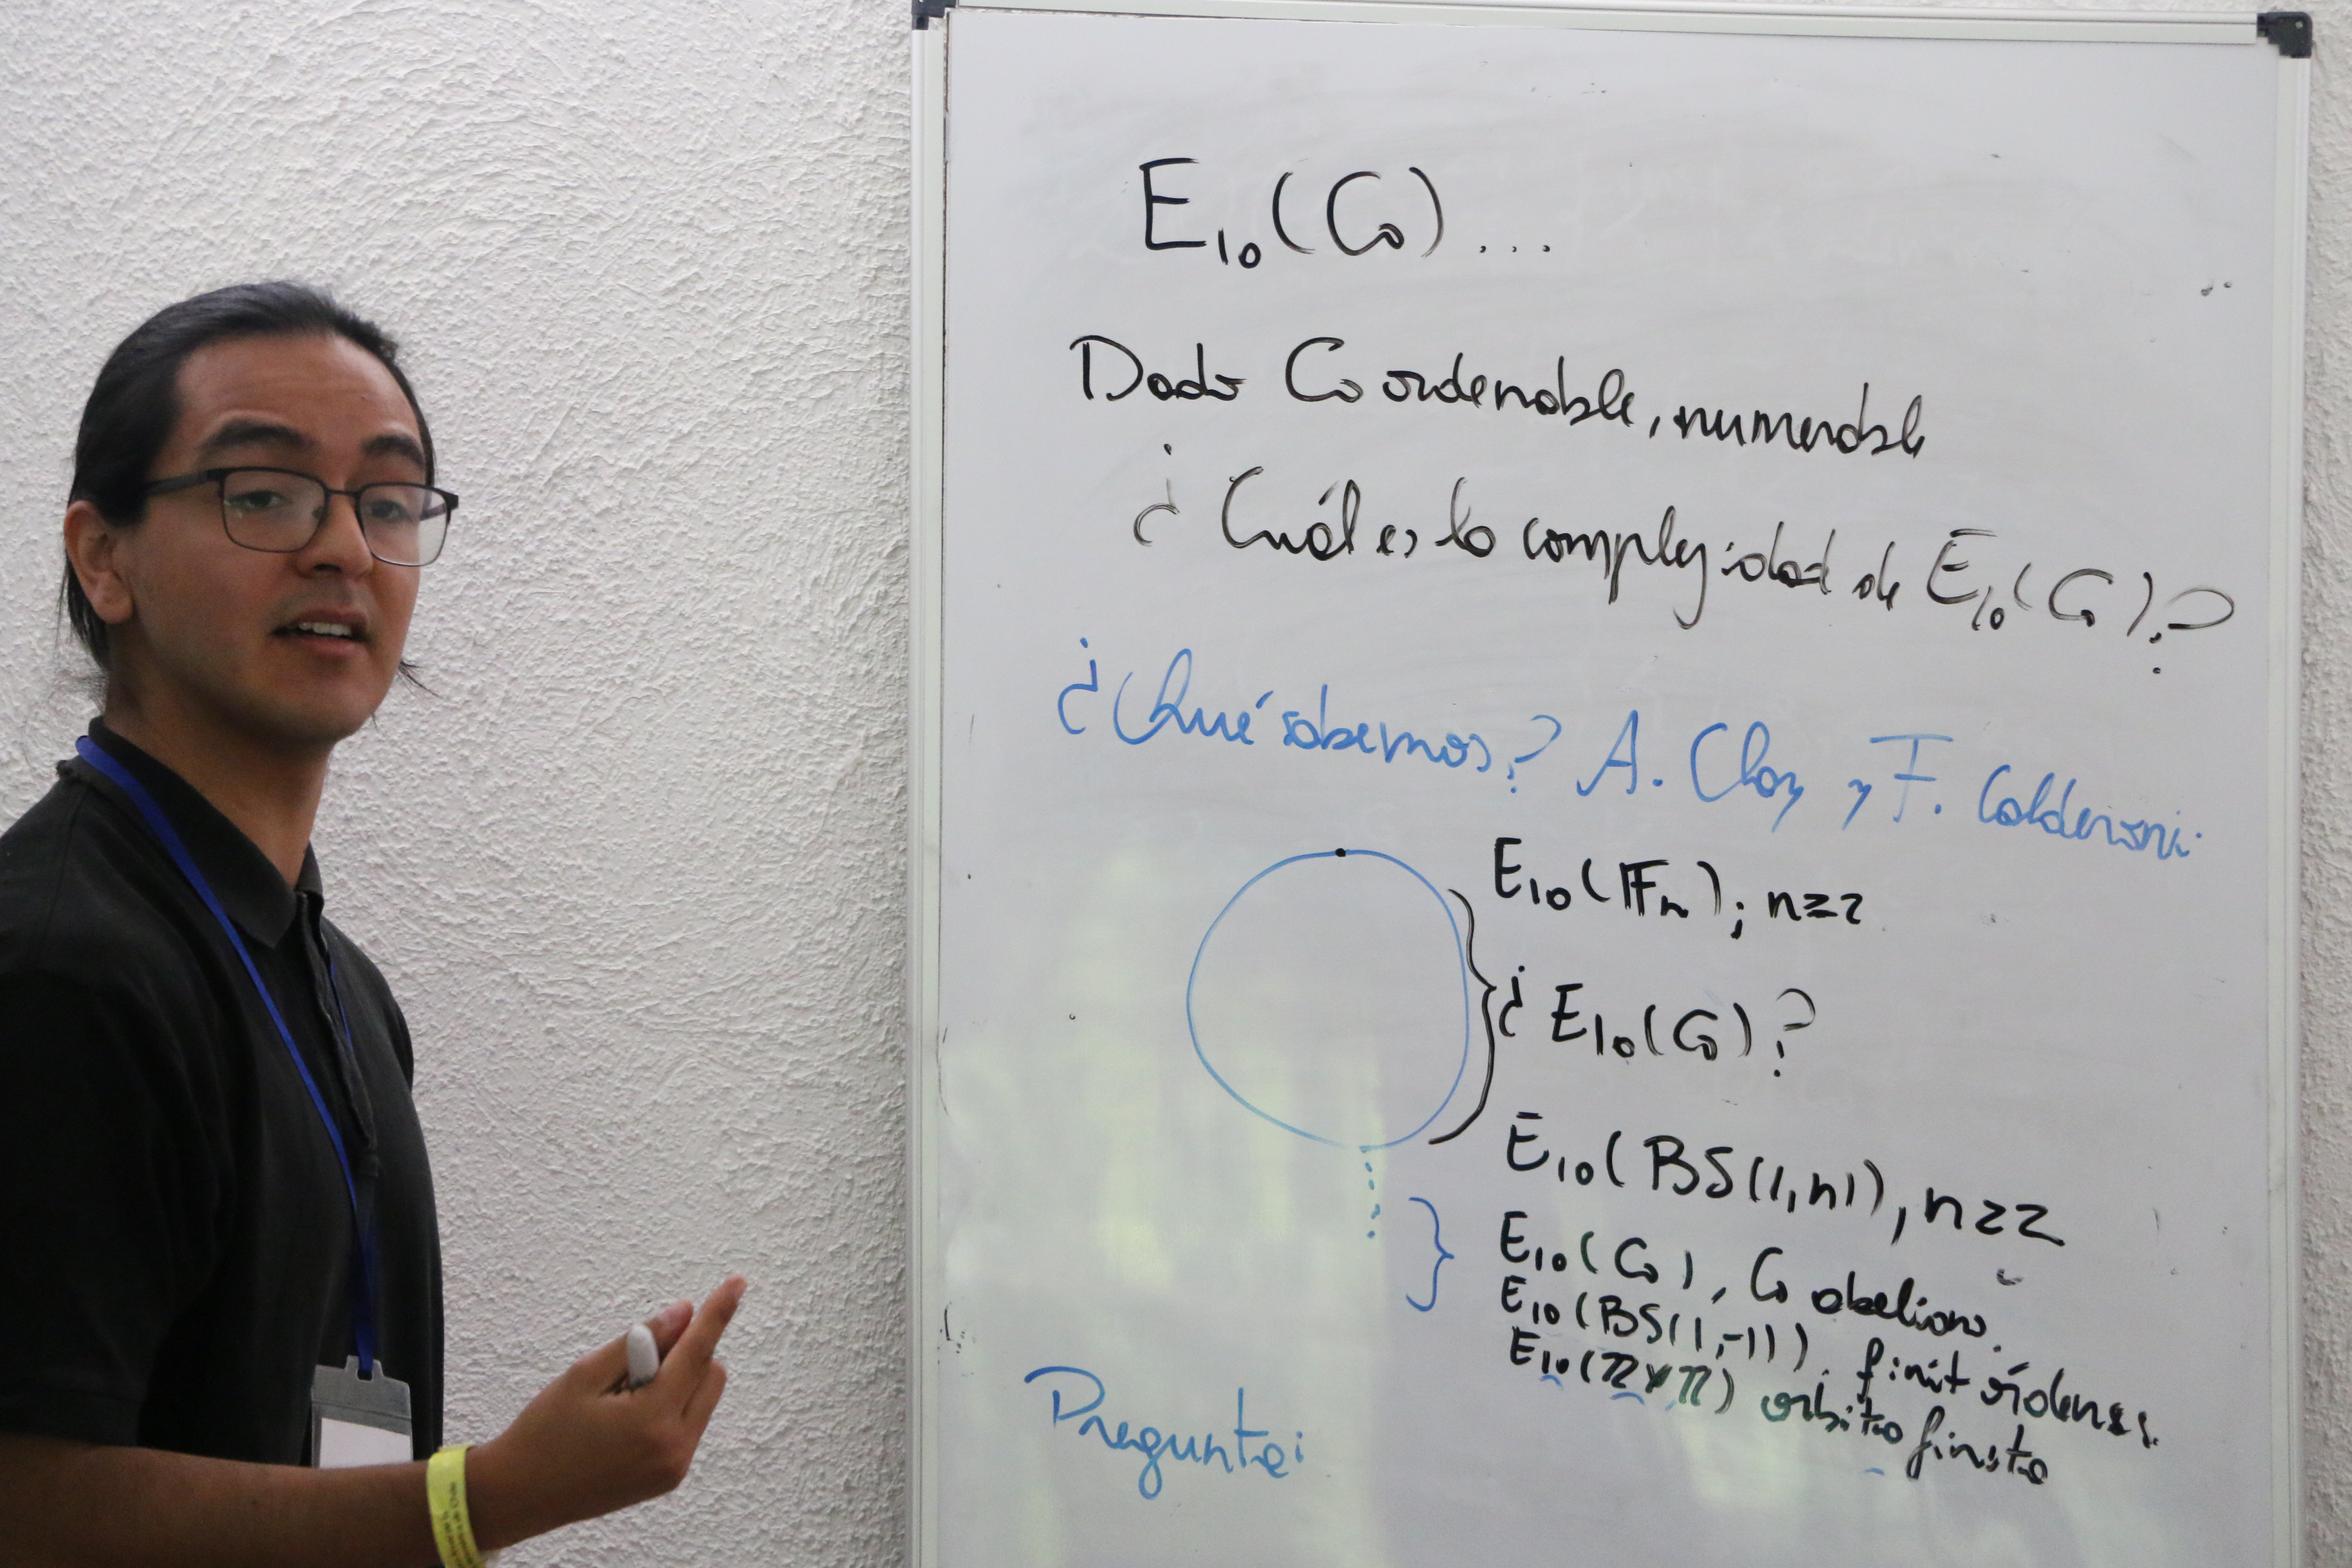 E_lo(G)...
Dado G ordenable, numerable
¿ Cuál es la complejidad de E_lo(G)?
¿Qué sabemos? A. Clay y F. Calderoni.
E_lo(𝔽_n); n≥2
¿ E_lo(G)?
E_lo(BS(1,n)), n≥2
E_lo(G), G abeliano.
E_lo(BS(1,-1)). finit órdenes.
E_lo(ℤ×ℤ) orbita finita
Pregunta: